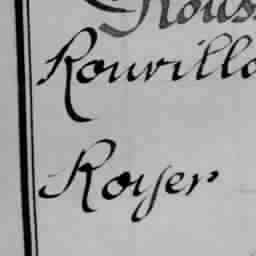 Rouss
Rouvillo
Royer